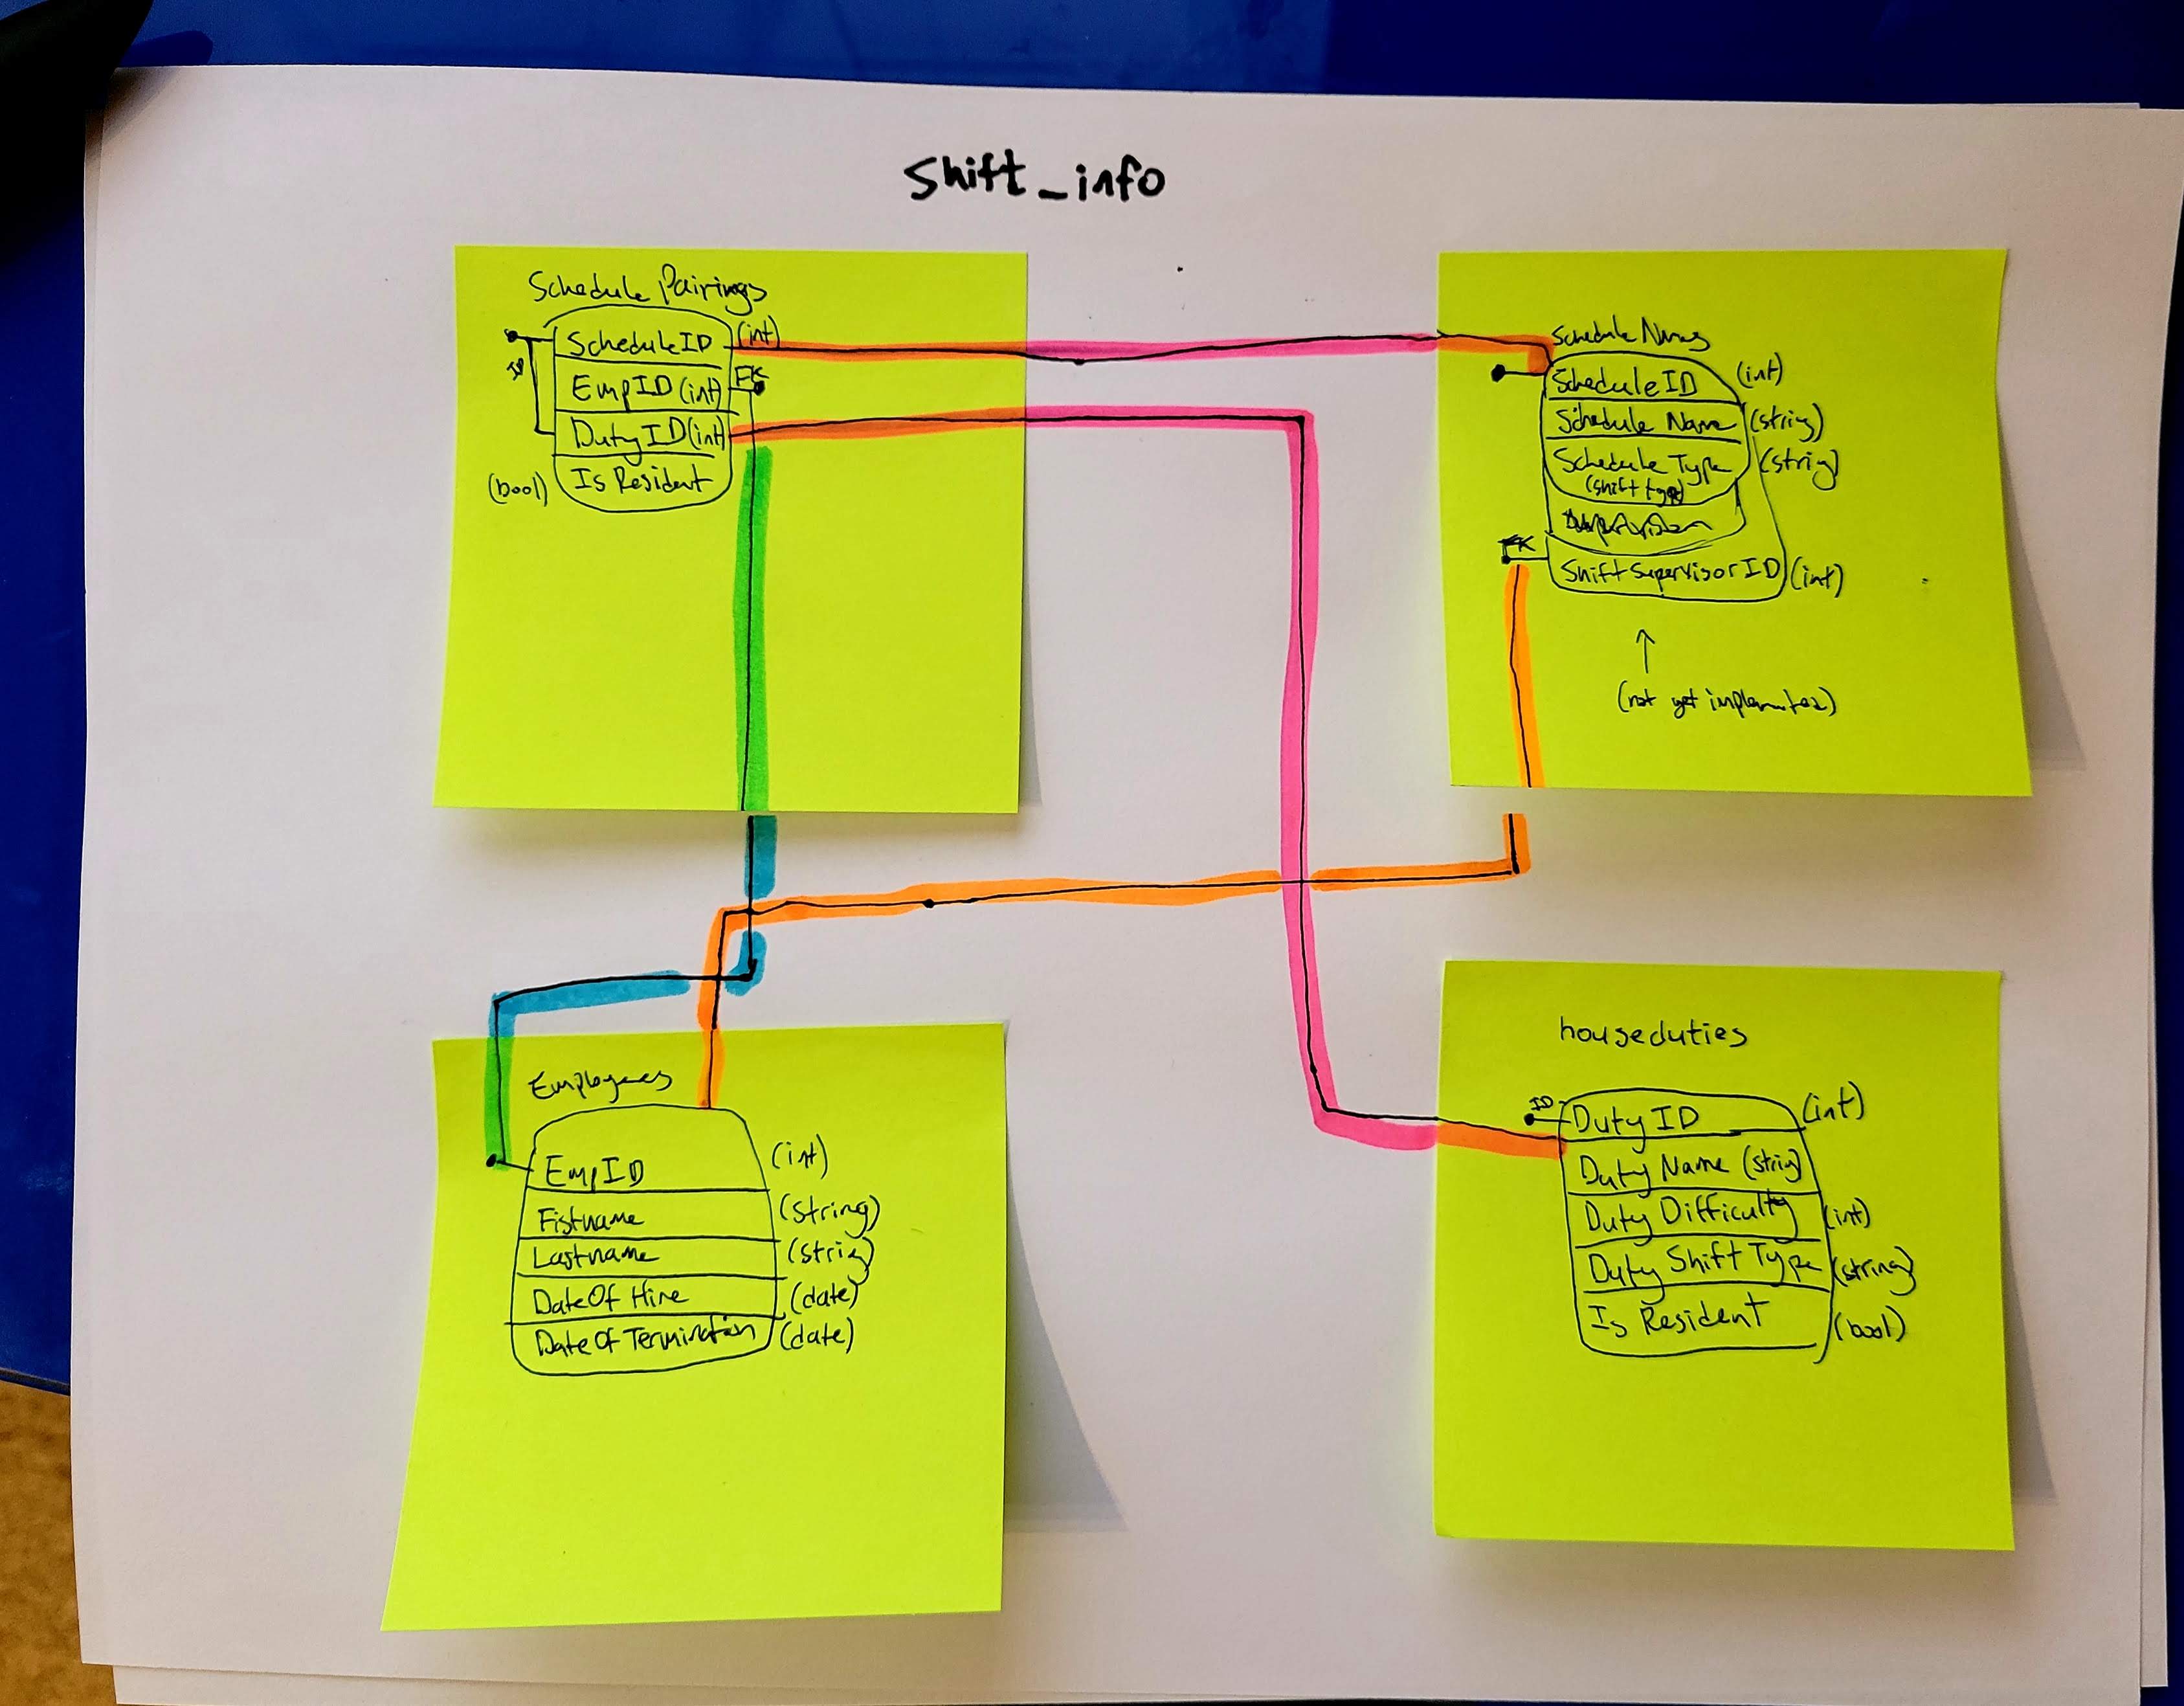 Shift_info
Schedule Pairings
ScheduleID (int)
ID
EmpID (int) FK
Duty ID (int)
(bool) Is Resident
Schedule Names
Schedule ID (int)
Schedule Name (string)
Schedule Type (strig)
(shift type)
FK
ShiftSupervisorID (int)
↑
(not yet implemented)
Employees
EmpID (int)
Fistname (string)
Lastname (strig)
DateOf Hire (date)
DateOf Termination (date)
houseduties
ID Duty ID (int)
Duty Name (strig)
Duty Difficulty (int)
Duty Shift Type (string)
Is Resident (bool)